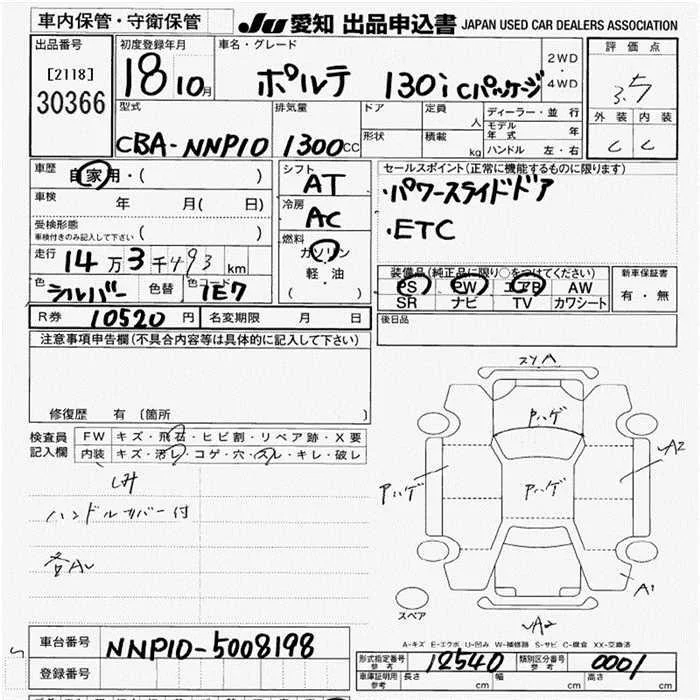 車内保管・守衛保管
JU 愛知 出品申込書 JAPAN USED CAR DEALERS ASSOCIATION
出品番号
[2118]
30366
初度登録年月
18 10月
車名・グレード
ポルテ 130i Cパッケージ
2WD
・
4WD
評価点
3.5
外装 内装
C C
型式
CBA-NNP10
排気量
1300cc
ドア
形状
定員
人
積載
kg
ディーラー・並行
モデル年式 年
ハンドル 左・右
車歴 自家用・( )
車検 年 月( 日)
受検形態
車検付きのみ記入して下さい ( )
走行 14万3千493km
色 シルバー 色替 色コード 1E7
シフト
AT
冷房
AC
燃料
ガソリン
軽・油
( )
セールスポイント(正常に機能するものに限ります)
・パワースライドドア
・ETC
装備品(純正品に限り○をつけてください)
PS PW エアB AW
SR ナビ TV カワシート
新車保証書
有・無
R券 10520円 名変期限 月 日
後日品
注意事項申告欄(不具合内容等は具体的に記入して下さい)
修復歴 有 〔箇所 〕
検査員記入欄
FW キズ・飛石・ヒビ割・リペア跡・X要
内装 キズ・汚レ・コゲ・穴・スレ・キレ・破レ
ハンドルカバー付
Pハゲ
Pハゲ
Pハゲ
A2
A1
A2
スペア
A-キズ E-エクボ U-凹み W-補修跡 S-サビ C-腐食 XX-交換済
車台番号 NNP10-5008198
登録番号
形式指定番号 参考 12540 類別区分番号 参考 0001
車庫証明用 参考 長さ cm 幅 cm 高さ cm